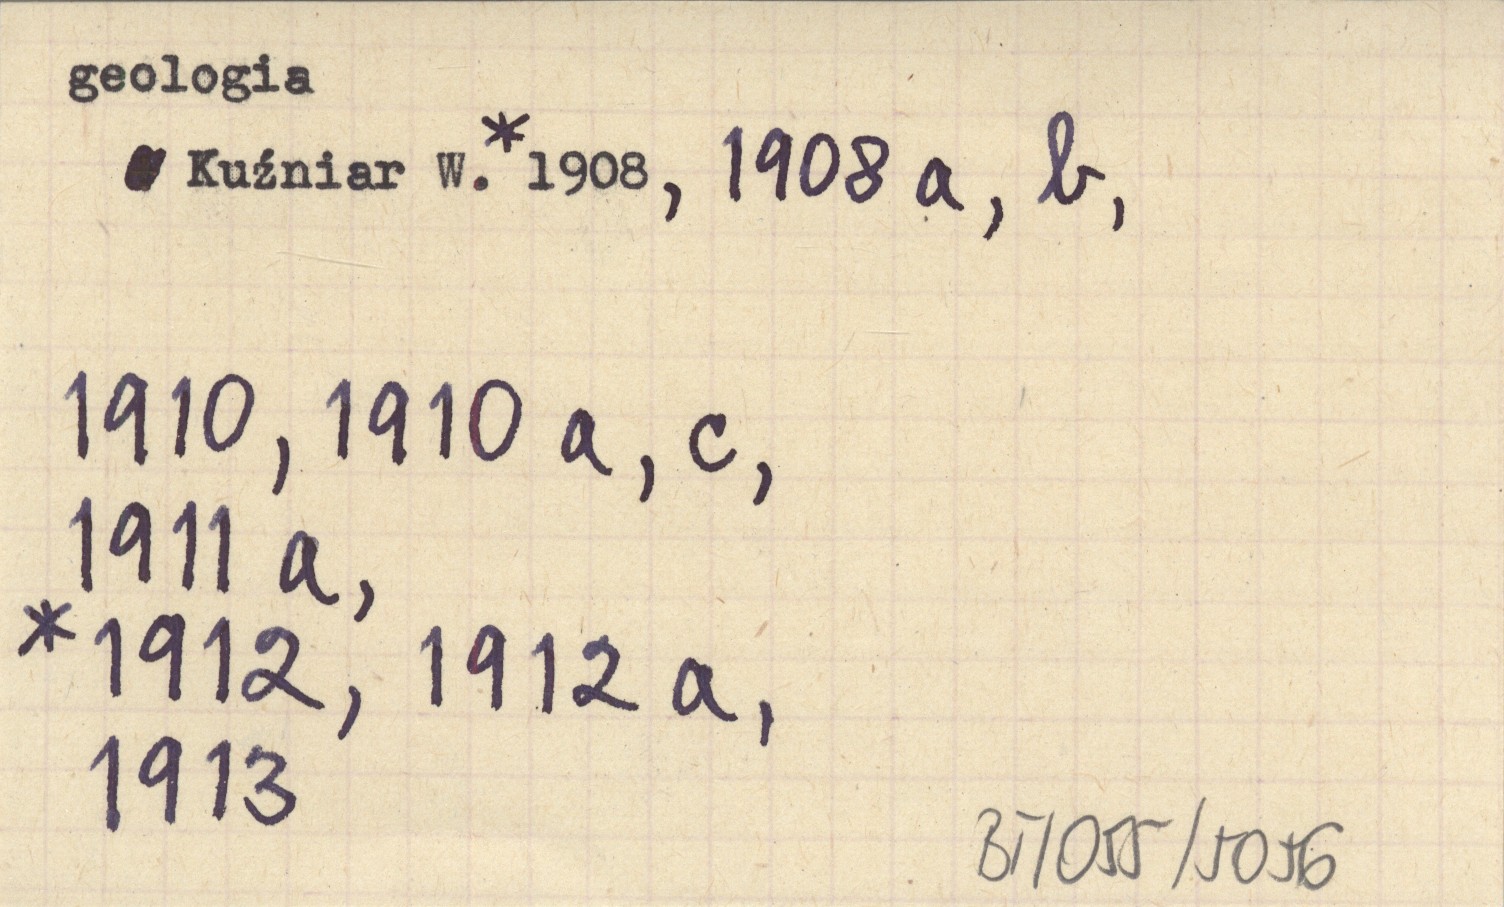 geologia
Kuźniar W. *1908, 1908 a, b,
1910, 1910 a, c,
1911 a,
*1912, 1912 a,
1913
BT/055/5056